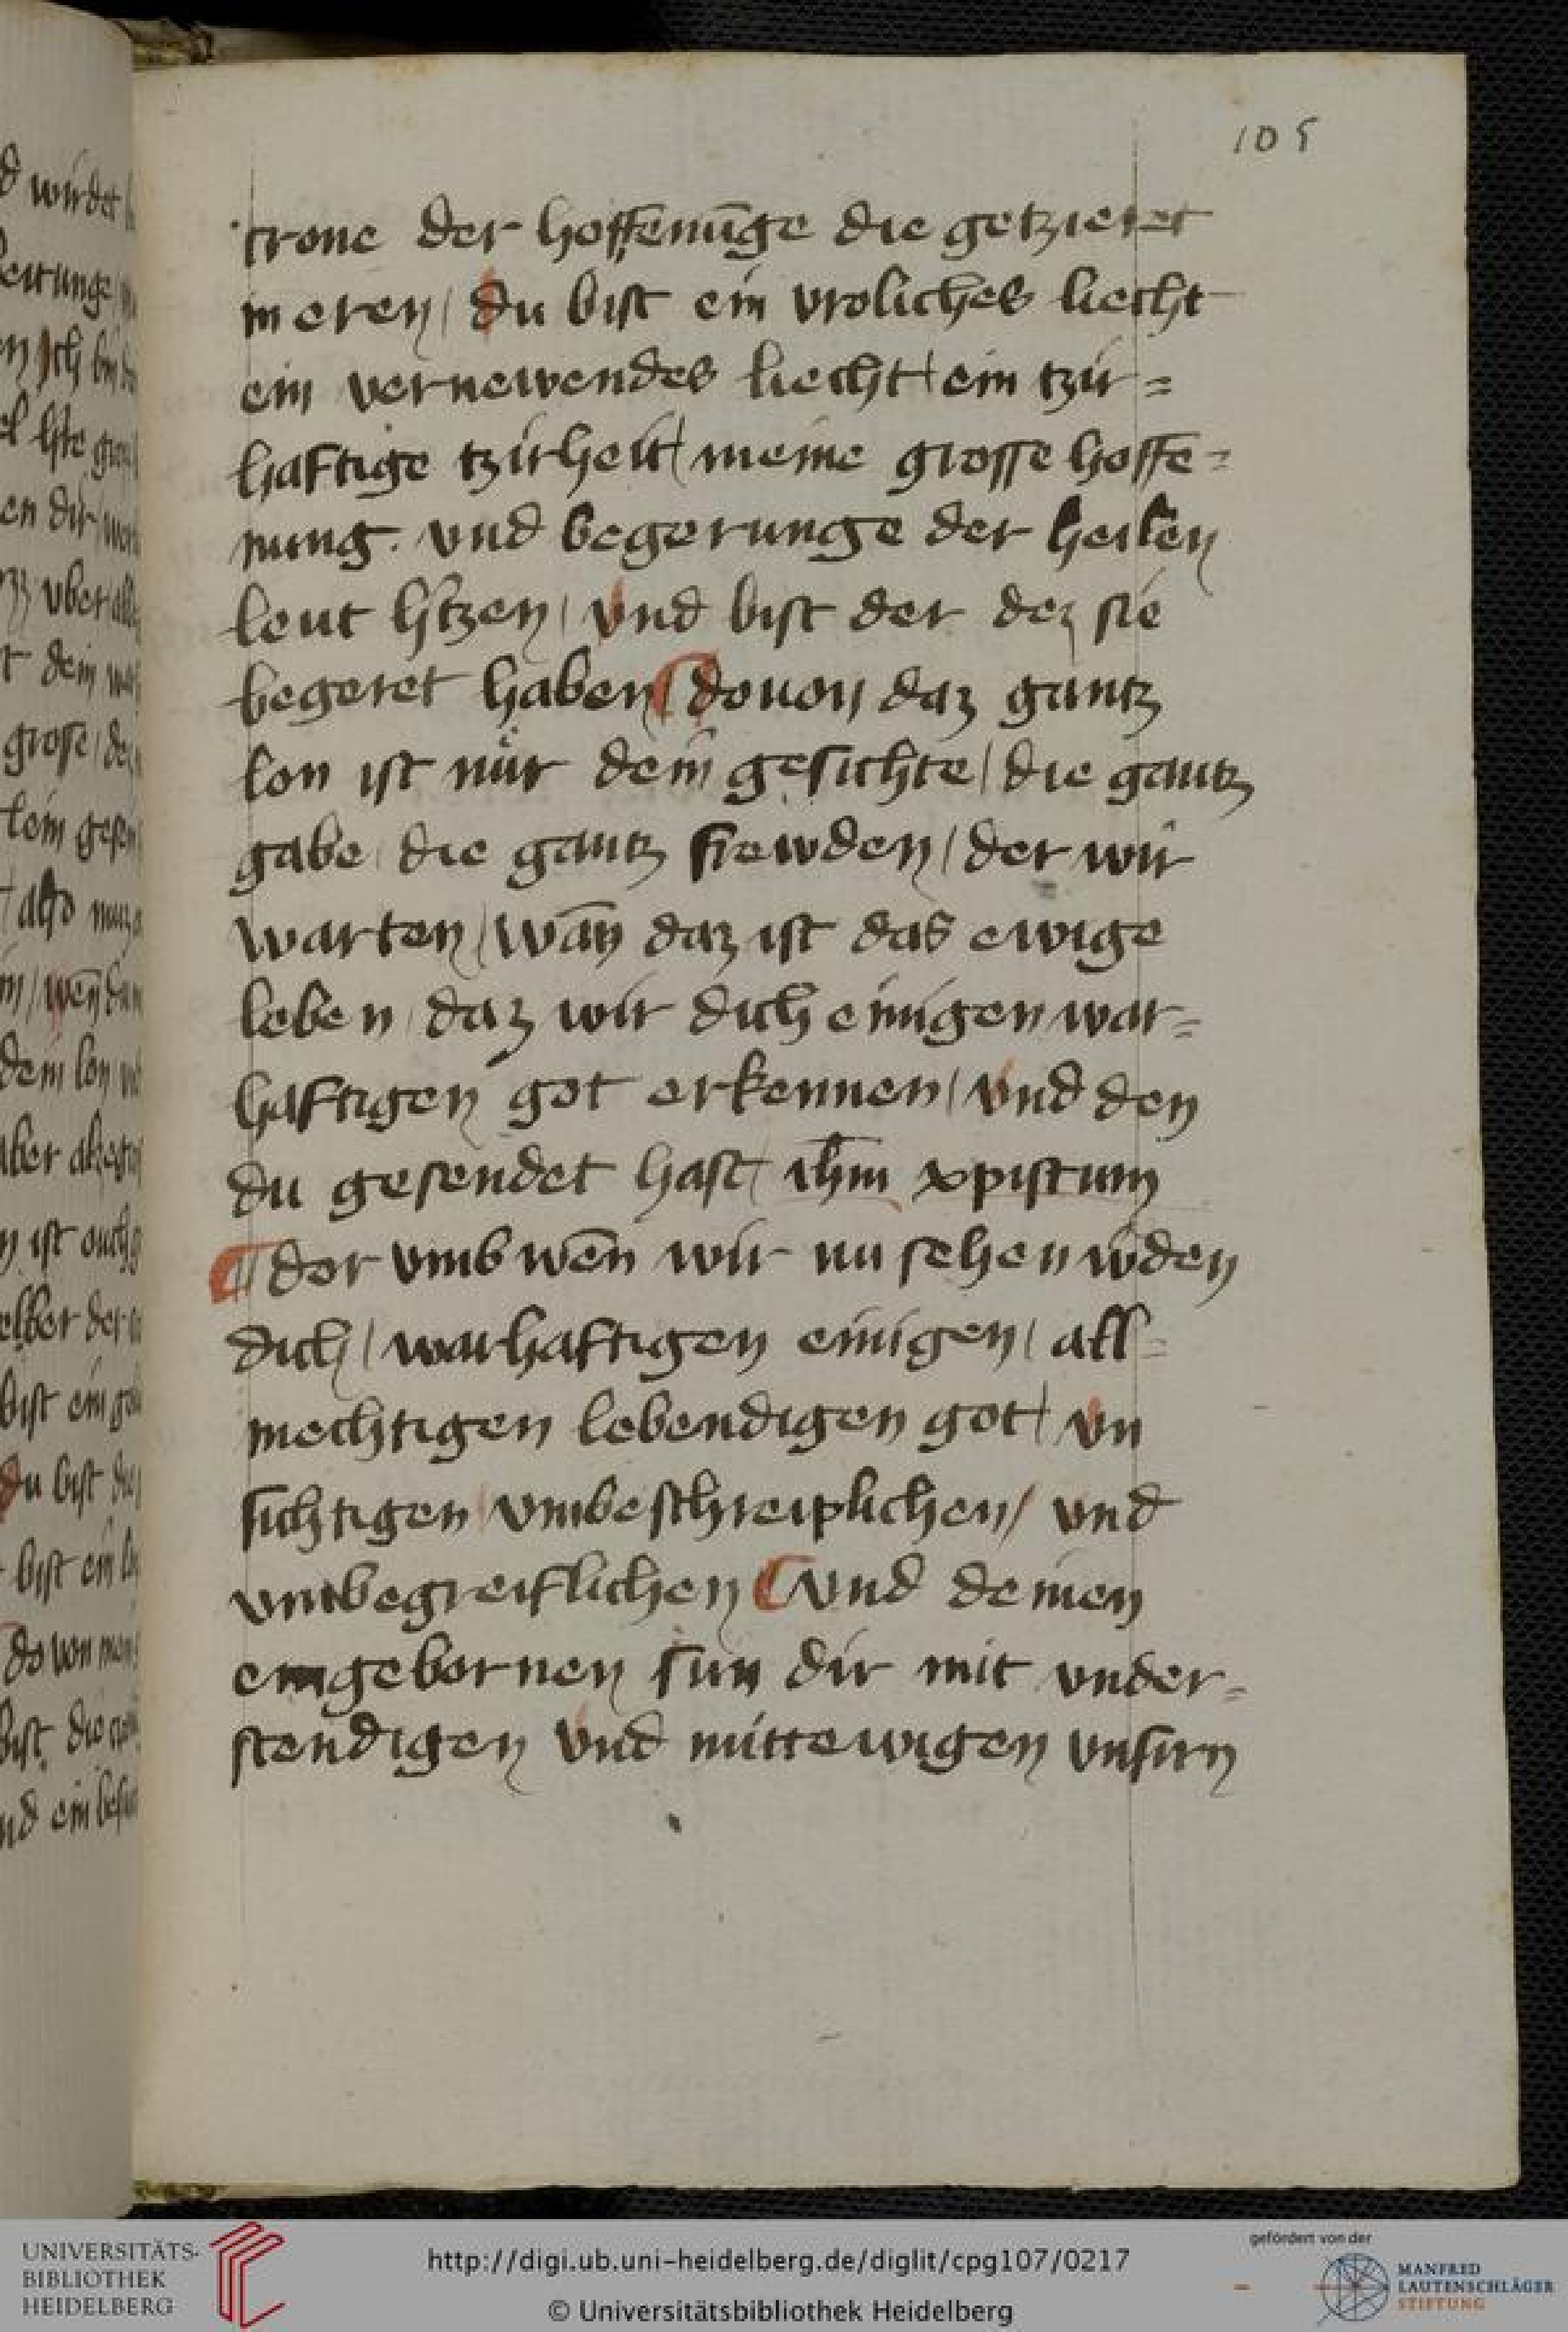 105
crone der hoffenūge die getzieret
in eren / du bist ein vroliches liecht
ein vernewendes liecht / ein tzir=
haftige tzirheit / meine grosse hoffe=
nung. vnd begerunge der heilen
leut h̄tzen / vnd bist der dez sie
begeret haben ¶ douon daz gantz
lon ist nür dein gesichte / die gantz
gabe / die gantz frewden / der wir
warten / wān daz ist das ewige
leben / daz wir dich einigen war=
haftigen got erkennen / vnd den
du gesendet hast / ih̄m xpistum
¶ dor vmb wēn wir nu sehen w̄den
dich / warhaftigen einigen / all=
mechtigen lebendigen got / vn
sichtigen / vmbeschreiplichen / vnd
vnbegreiflichen ¶ vnd deinen
eingebornen sun dir mit vnder=
stendigen vnd mittewigen vnsirn
d wirdet
dein
grosse / de
also
dein lon
ist ouch
bist ein
du bist
bist ein
do von
bist die
UNIVERSITÄTS-
BIBLIOTHEK
HEIDELBERG
http://digi.ub.uni-heidelberg.de/diglit/cpg107/0217
© Universitätsbibliothek Heidelberg
gefördert von der
MANFRED
LAUTENSCHLÄGER
STIFTUNG